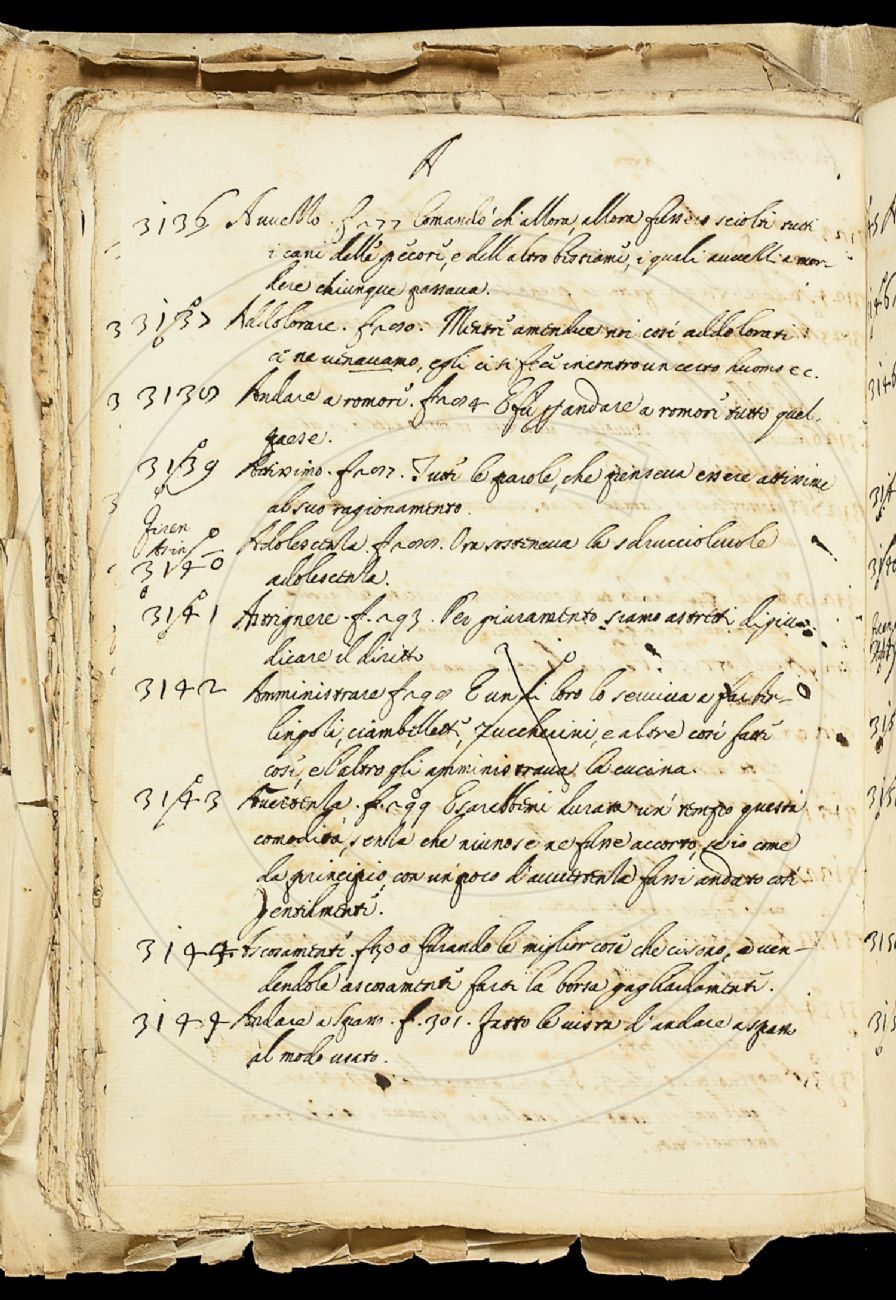 A
3136 Auuezzo. f. 277 Comandò ch'allora, allora fussero sciolti tutti
i cani delle pecore, e dell altro bestiame, i quali auuezzi a mor-
dere chiunque passaua.
3137 Addolorare. f. 280. Mentre amendue noi così addolorati
ce ne uenauamo, egli ci si fece incontro un certo huomo ec.
3138 Andare a romore. f. 284 E fu per andare a romore tutto quel
paese.
3139 Attissimo. f. 287. Tutte le parole, che pensaua essere attissime
al suo ragionamento.
Firen
Asin
3140 Adolescenza. f. 288. Ora sosteneua la sdruccioleuole
adolescenza.
3141 Astrignere. f. 293. Per giuramento siamo astretti di giu-
dicare il diritto
3142 Amministrare f. 298 E un di loro lo seruiua a far ber-
lingozzi, ciambellette, zuccherini, e altre cose fatte
così, e l'altro gli amministraua la cucina.
3143 Auuertenza. f. 299 E sarebbemi durata un tempo questa
comodità, senza che niuno se ne fusse accorto, se io come
da principio, con un poco d'auuertenza fussi andato così
gentilmente.
3144 Ascosamente. f. 300 furando le miglior cose che ci sono, e uen-
dendole ascosamente farsi la borsa gagliardamente.
3144 Andare a spasso. f. 301. Fatto le uista d'andare a spasso
al modo usato.